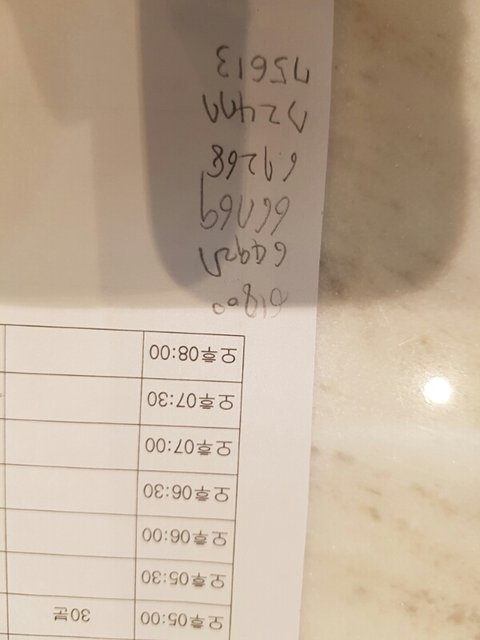 오후05:00 30분
오후05:30
오후06:00
오후06:30
오후07:00
오후07:30
오후08:00
61800
64927
66769
69268
72477
75613